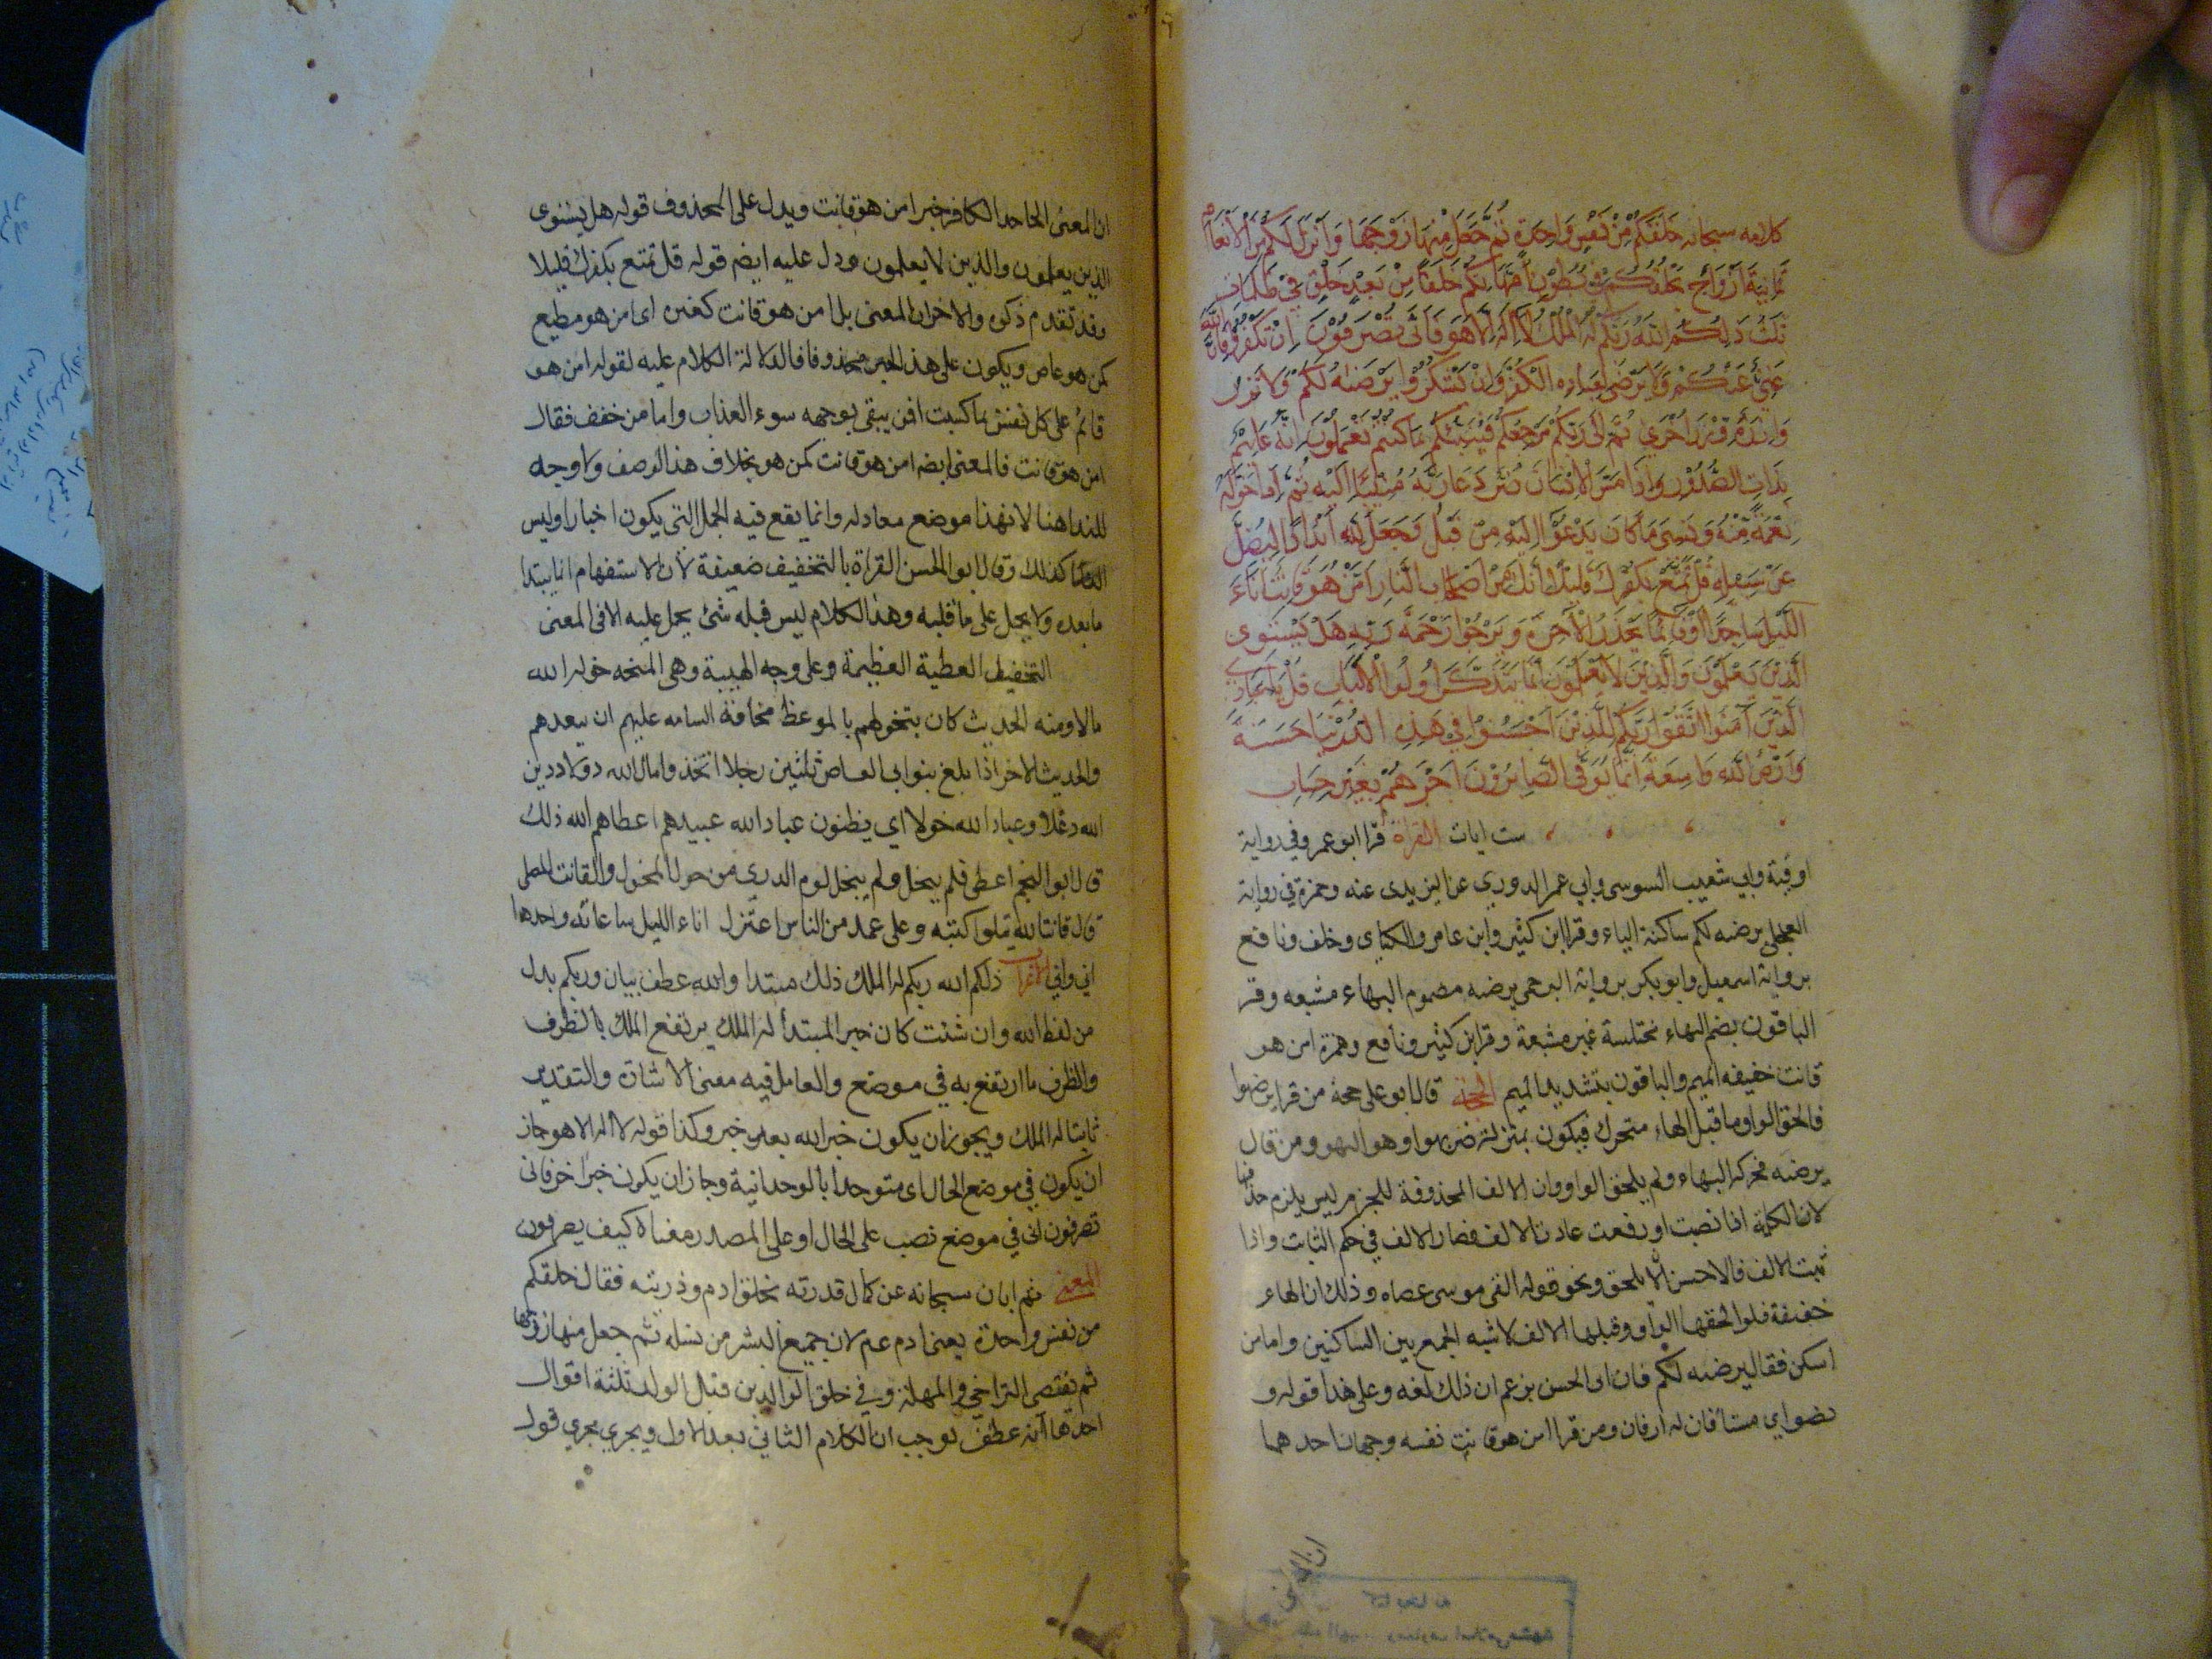 كلامه سبحانه خلقكم من نفس واحدة ثم جعل منها زوجها وانزل لكم من الانعام
ثمانية ازواج يخلقكم في بطون امهاتكم خلقا من بعد خلق في ظلمات
ثلث ذلكم الله ربكم له الملك لا اله الا هو فانى تصرفون ان تكفروا فان الله
غني عنكم ولا يرضى لعباده الكفر وان تشكروا يرضه لكم ولا تزر
وازرة وزر اخرى ثم الى ربكم مرجعكم فينبئكم بما كنتم تعملون انه عليم
بذات الصدور واذا مس الانسان ضر دعا ربه منيبا اليه ثم اذا خوله
نعمة منه ونسي ما كان يدعوا اليه من قبل وجعل لله اندادا ليضل
عن سبيله قل تمتع بكفرك قليلا انك من اصحاب النار امن هو قانت اناء
الليل ساجدا وقائما يحذر الاخرة ويرجوا رحمة ربه هل يستوى
الذين يعلمون والذين لا يعلمون انما يتذكر اولوا الالباب قل يا عبادي
الذين آمنوا اتقوا ربكم للذين احسنوا في هذه الدنيا حسنة
وارض الله واسعة انما يوفى الصابرون اجرهم بغير حساب
ست ايات القراة قرا ابو عمرو في رواية
اوقية وابي شعيب السوسى وابي عمر الدوري عن اليزيدى عنه وحمزة في رواية
العجلى يرضه لكم ساكنة الهاء وقرا ابن كثير وابن عامر والكسائى وخلف ونافع
برواية اسمعيل وابو بكر برواية البرجمى يرضه مضموم الهاء مشبعه وقرا
الباقون بضم الهاء مختلسة غير مشبعة وقرا ابن كثير ونافع وحمزة امن هو
قانت خفيفه الميم والباقون بتشديد الميم الحجة قال ابو على حجة من قرا يرضهوا
فالحق الواو ما قبل الهاء متحرك فيكون بمنزلة ضربهوا وهو الهو ومن قال
يرضه فحركه الهاء ولم يلحق الواو وان الالف المحذوفة للجزم ليس يلزم حذفها
لان الكلمة اذا نصبت او رفعت عادت الالف فصار الالف في حكم الثابت واذا
ثبت الالف فالاحسن ان لا يلحق ونحو قوله القى موسى عصاه وذلك ان الهاء
خفيفة فلو الحقها الواو وقبلها الالف لاشبه الجمع بين الساكنين واما من
اسكن فقال يرضه لكم فان ابى الحسن يزعم ان ذلك لغه وعلى هذا قوله و
نضواي مشتاقان له ارقان ومن قرا امن هو قانت نفسه وجهان احدهما
ان المعنى الجاحد الكافر خير امن هو قانت ويدل على المحذوف قوله هل يستوى
الذين يعلمون والذين لا يعلمون ودل عليه ايضم قوله قل تمتع بكفرك قليلا
وقد تقدم ذكره والاخر ان المعنى بل امن هو قانت كغيره اى امن هو مطيع
كمن هو عاص ويكون على هذا الخبر محذوفا فالدلالة الكلام عليه لقوله امن هو
قائم على كل نفس بما كسبت افمن يتقى بوجهه سوء العذاب واما من خفف فقال
امن هو قانت فالمعنى ايضم امن هو قانت كمن هو بخلاف هذا الوصف ولا وجه
للندا هنا لان هذا موضع معادله وانما يقع فيه الجمل التى يكون اخبارا وليس
الندا كذلك وقال ابو الحسن القراة بالتخفيف ضعيفة لان الاستفهام انما يبتدا
ما بعده ولا يحمل على ما قبله وهذا الكلام ليس قبله شئ يحمل عليه الا فى المعنى
التخفيل العطية العظيمة وعلى وجه الهيبة وهى المنحه خوله الله
مالا ومنه الحديث كان يتخولهم بالموعظ مخافة السامه عليهم ان يبعدهم
والحديث الاخر اذا بلغ بنو ابى العاص ثلثين رجلا اتخذوا مال الله دولا ودين
الله دغلا وعباد الله خولا اي يظنون عباد الله عبيدهم اعطاهم الله ذلك
قال ابو النجم اعطى فلم يبخل ولم يبخل لوم الذرى من خول المخول والقانت المصلى
قال قانتا لله يتلوا كتبه وعلى عمد من الناس اعتزل اناء الليل ساعاته واحدها
اني واني الاعراب ذلكم الله ربكم له الملك ذلك مبتدا والله عطف بيان وربكم بدل
من لفظ الله وان شئت كان خبر المبتدأ له الملك يرتفع الملك بالظرف
والظرف ما ارتفع به في موضع والعامل فيه معنى الاشارة والتقدير
ثابتا له الملك ويجوز ان يكون خبر الله بعد خبر وكذا قوله لا اله الا هو جاز
ان يكون في موضع الحال اى متوحدا بالوحدانية وجاز ان يكون خبرا اخر فانى
تصرفون انى في موضع نصب على الحال او على المصدر معناه كيف يصرفون
المعنى ثم ابان سبحانه عن كمال قدرته بخلق ادم وذريته فقال خلقكم
من نفس واحدة يعنى ادم عم لان جميع البشر من نسله ثم جعل منها زوجها
ثم يقتضى التراخي والمهلة وفي خلق الوالدين قبل الولد ثلثة اقوال
احدها انه عطف يوجب ان الكلام الثاني بعد الاول ويجري مجرى قول